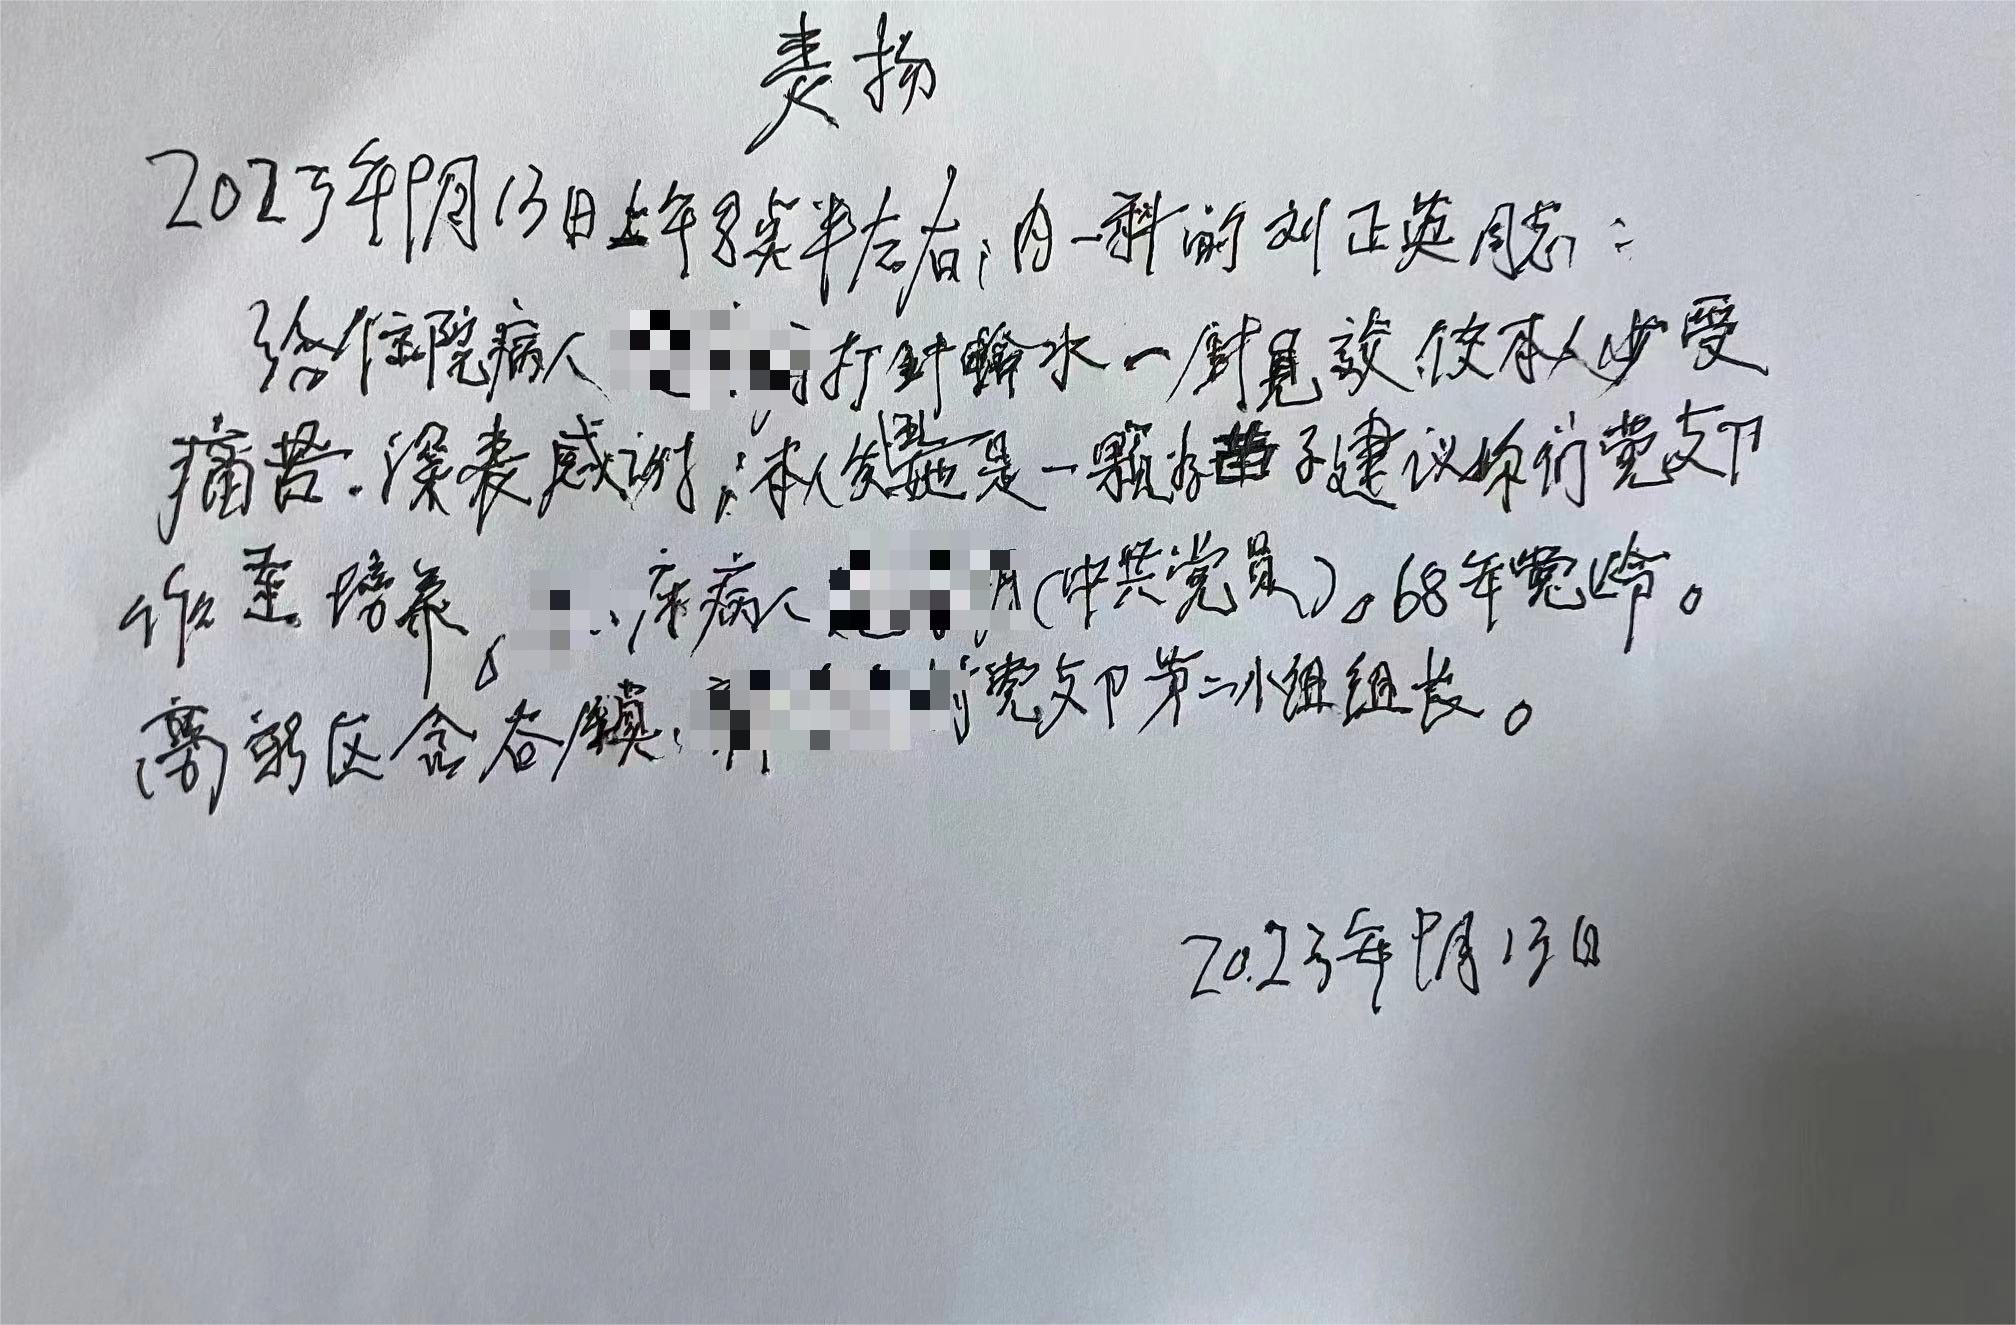 表扬
2023年9月13日上午8点半左右;内一科的刘正英同志:
给住院病人 打针输水一针见效使本人少受
痛苦.深表感谢;本人发现她是一颗好苗子建议你们党支卩
作重培养。 床病人 (中共党员)。68年党令。
高新区含谷镇, 党支卩第二小组组长。
2023年9月13日